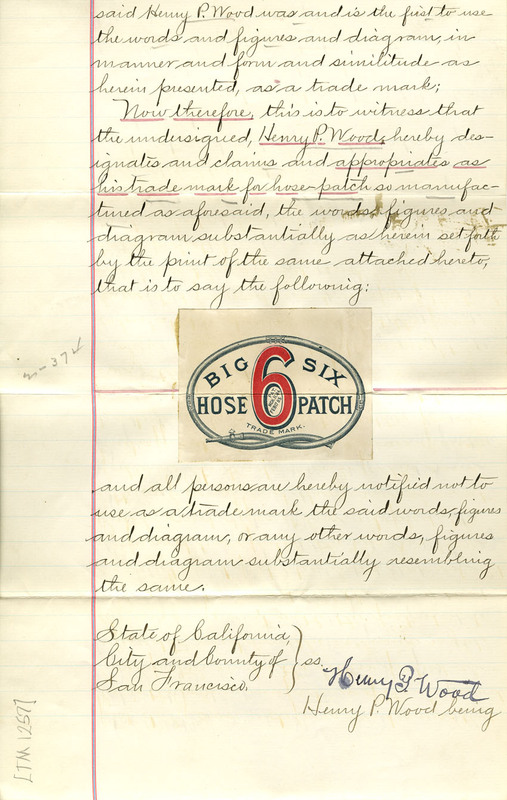 said Henry P. Wood was and is the first to use
the words and figures and diagram, in
manner and form and similitude as
herein presented, as a trade mark;
Now therefore, this is to witness that
the undersigned, Henry P. Wood, hereby des-
ignates and claims and appropriates as
his trade mark for hose-patch so manufac-
tured as aforesaid, the words, figures and
diagram substantially as herein set forth
by the print of the same attached hereto,
that is to say the following:
2-374
BIG 6 SIX
HOSE PATCH
TRADE MARK.
and all persons are hereby notified not to
use as a trade mark the said words, figures
and diagram, or any other words, figures
and diagram substantially resembling
the same.
State of California,
City and County of } ss.
San Francisco.
Henry P. Wood
Henry P. Wood being
[TM 1257]